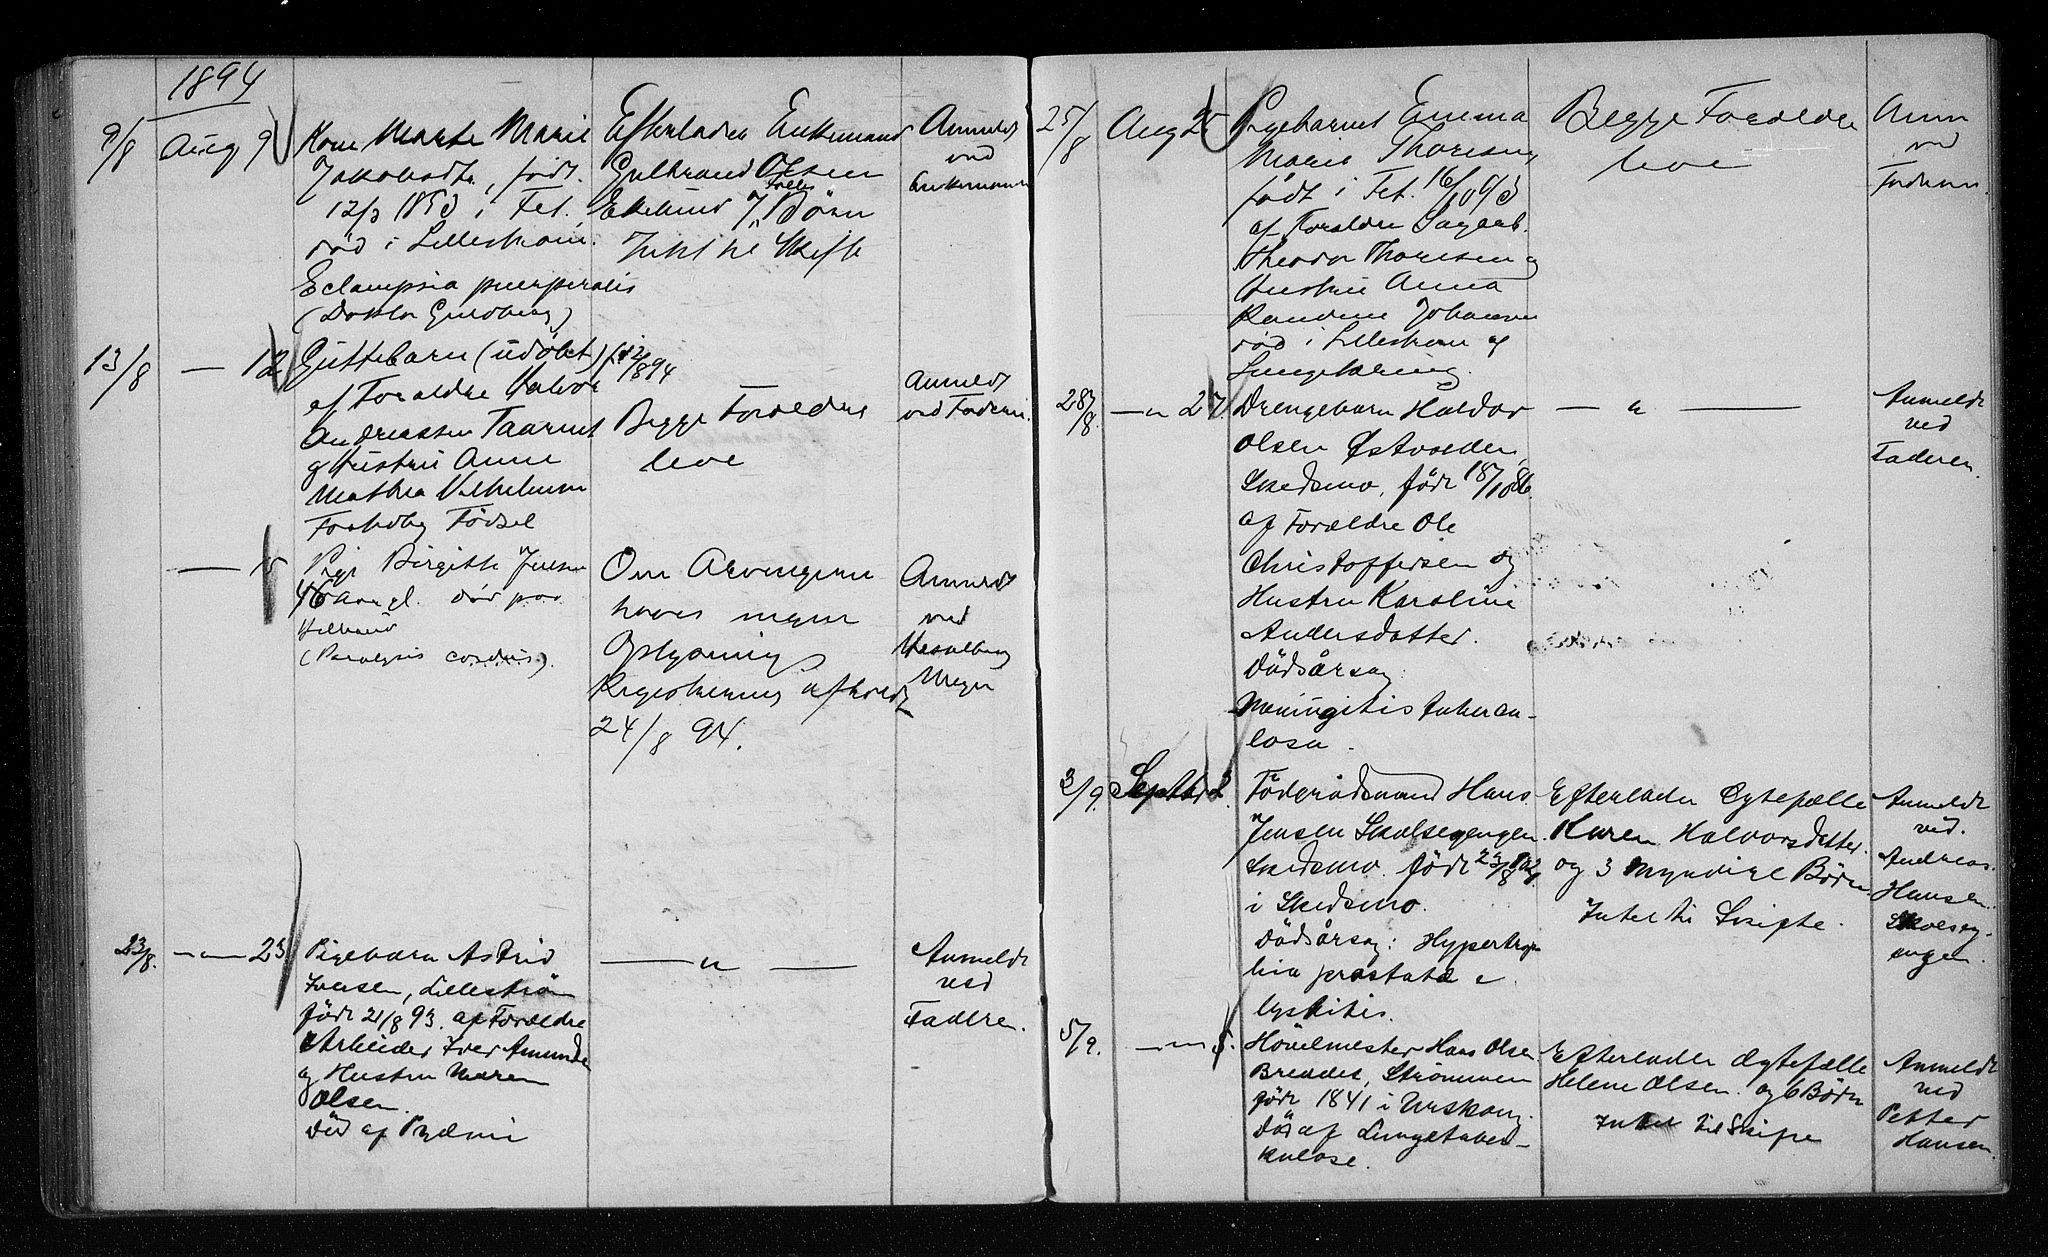 1894
9/8 Aug 9 Kone Marte Marie
Jakobsdtr, født
12/3 1853 i Fet.
död i Lillestrøm.
Eclampsia puerperalis
(Doktor Guldberg)
Efterlader Enkemand
Gulbrand Olsen
7 Börn
Intet til Skifte
Anmeldt
ved
Enkemanden
13/8 — 12 Guttebarn (udöbt) f. 12/8 94
af Forældre Halvor
Andreassen
og Hustru Anne
Mathea Vilhelmsen
Fortidlig Födsel
Begge Forældre
leve
Anmeldt
ved Faderen
— 15 Pige Birgitte Jensen
46 Aar gl. död paa
(Paralysis cordis).
Om Arvingerne
haves ingen
Oplysning
Registrering afholdt
24/8 94.
Anmeldt
ved
Meyer
23/8. — " — 23 Pigebarn Astrid
Iversen, Lilleström
född 21/8 93. af Forældre
Arbeider Iver Amundsen
og Hustru Maren
Olsen.
Död af
— " —
Anmeldt
ved
Faderen.
25/8 Aug 25 Pigebarnet Emma
Marie Thoresen
født i Fet. 16/10 93
af Forældre Sagarb.
Theodor Thoresen og
Hustru Anna
Randine Johansen
död i Lillestrøm af
Begge Forældre
leve
Anm
ved
Faderen.
28/8. — " 27 Drengebarn Haldor
Olsen Østvolden,
Skedsmo, född 18/10 86.
af Forældre Ole
Christoffersen og
Hustru Karoline
Andersdatter.
Dödsårsag:
Meningitis tubercu-
losa.
— " —
Anmeldt
ved
Faderen
3/9. Septbr 2. Föderådsmand Hans
Jensen Skolsegengen.
Skedsmo. född 23/8
i Skedsmo.
Dödsårsag: Hypertrop
hia prostata c
cystitis.
Efterlader Ægtefælle
Karen Halvorsdatter.
og 3 myndige Börn.
Intet til Skifte.
Anmeldt
ved.
Andreas
Hansen.
Skolseg-
engen.
5/9. — " — 5. Hövelmester Hans Olsen
Strømmen
född 1841 i Urskoug.
Död af Lungetuber-
kulose.
Efterlader Ægtefælle
Helene Olsen. og 6 Börn
Intet til Skifte
Anmeldt
ved
Petter
Hansen.